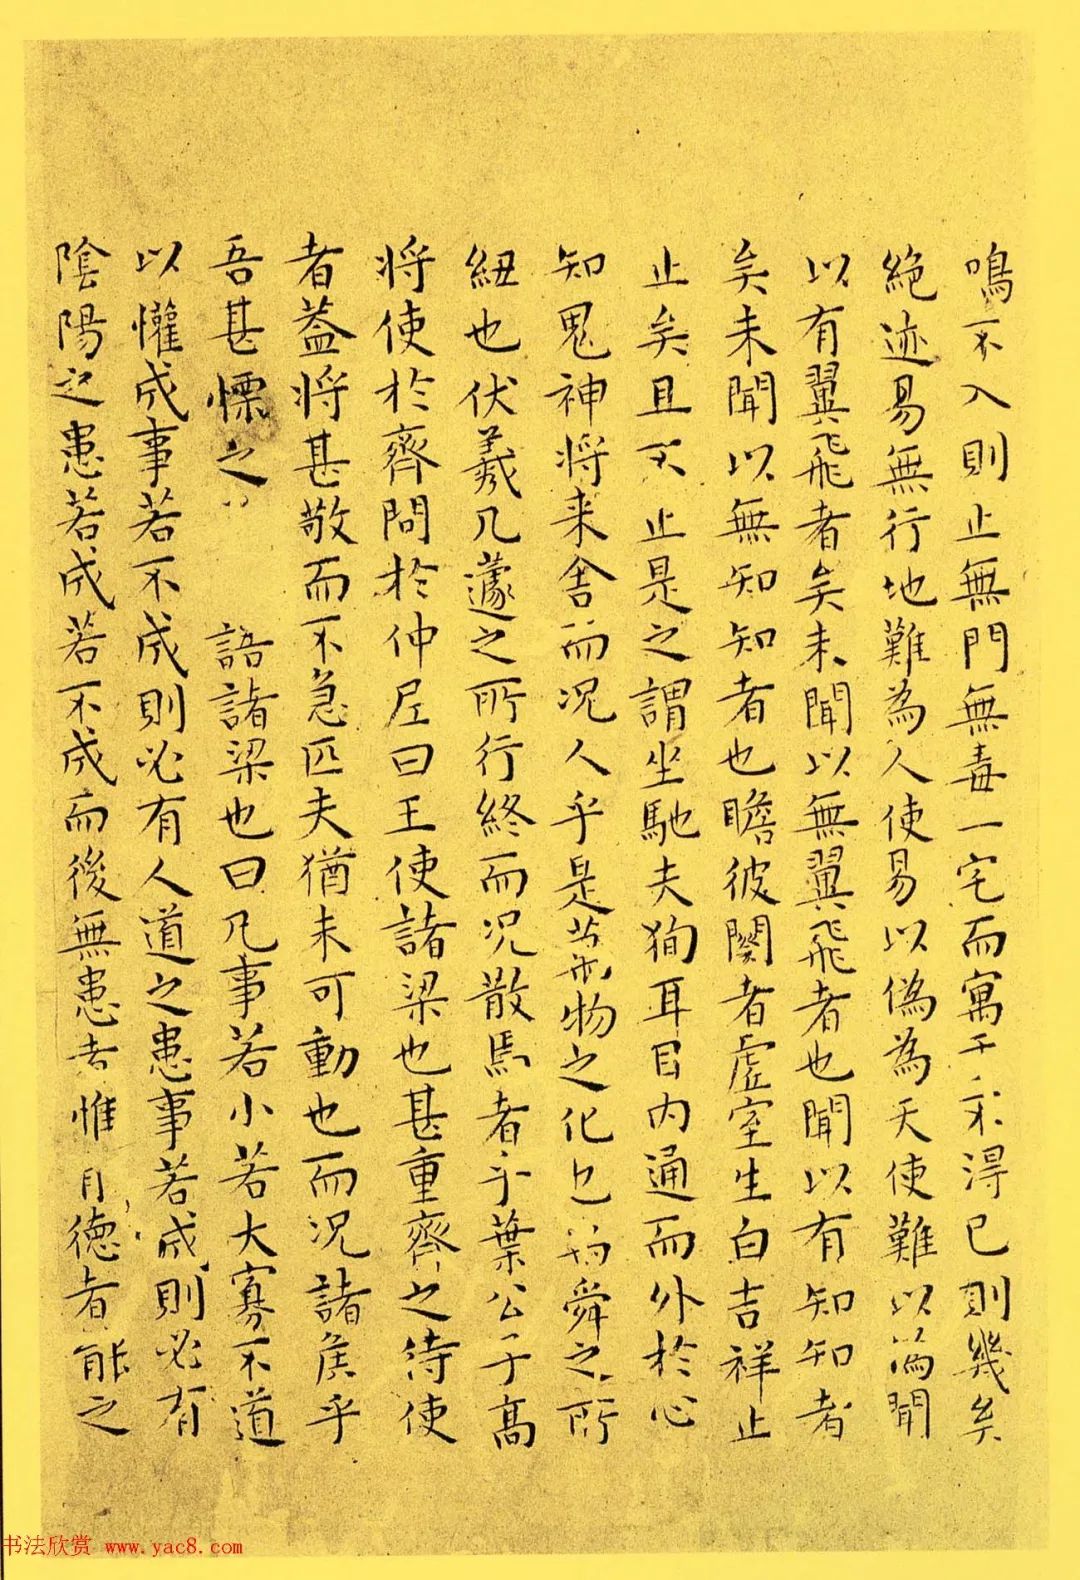 鳴不入則止無門無毒一宅而寓于不得已則幾矣
絕迹易無行地難為人使易以偽為天使難以偽聞
以有翼飛者矣未聞以無翼飛者也聞以有知知者
矣未聞以無知知者也瞻彼闋者虛室生白吉祥止
止矣且不止是之謂坐馳夫狥耳目內通而外於心
知鬼神將来舍而况人乎是萬物之化也 舜之所
紐也伏羲几蘧之所行終而况散馬者乎葉公子高
將使於齊問於仲尼曰王使諸梁也甚重齊之待使
者蓋將甚敬而不急匹夫猶未可動也而况諸侯乎
吾甚慄之 語諸梁也曰凡事若小若大寡不道
以懽成事若不成則必有人道之患事若成則必有
陰陽之患若成若不成而後無患者惟有德者能之
书法欣赏 www.yac8.com